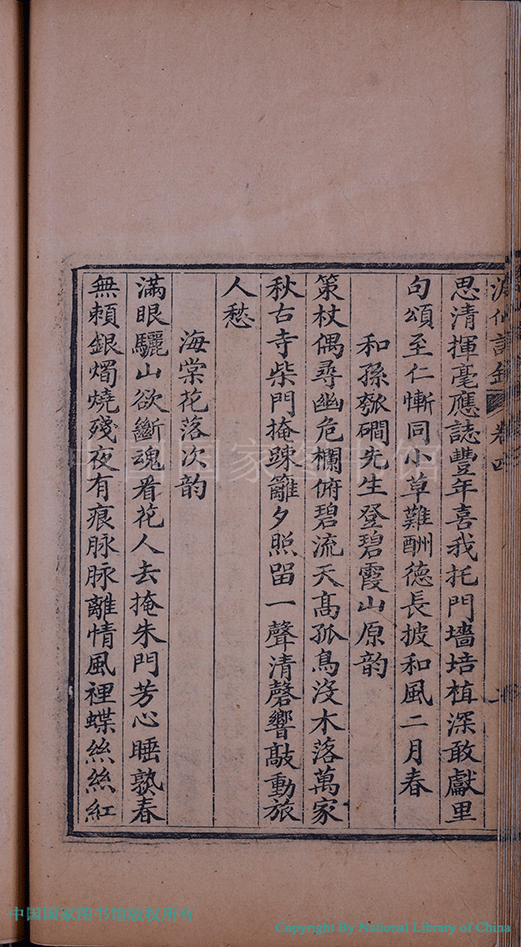 思清揮毫應誌豐年喜我托門墻培植深敢獻里
句頌至仁慚同小草難酬德長披和風二月春
和孫瓠磵先生登碧霞山原韵
策杖偶尋幽危欄俯碧流天高孤鳥沒木落萬家
秋古寺柴門掩踈籬夕照留一聲清磬響敲動旅
人愁
海棠花落次韵
滿眼驪山欲斷魂看花人去掩朱門芳心睡孰春
無頼銀燭燒殘夜有痕脉脉離情風裡蝶絲絲紅
中国国家图书馆版权所有
Copyright By National Library of China